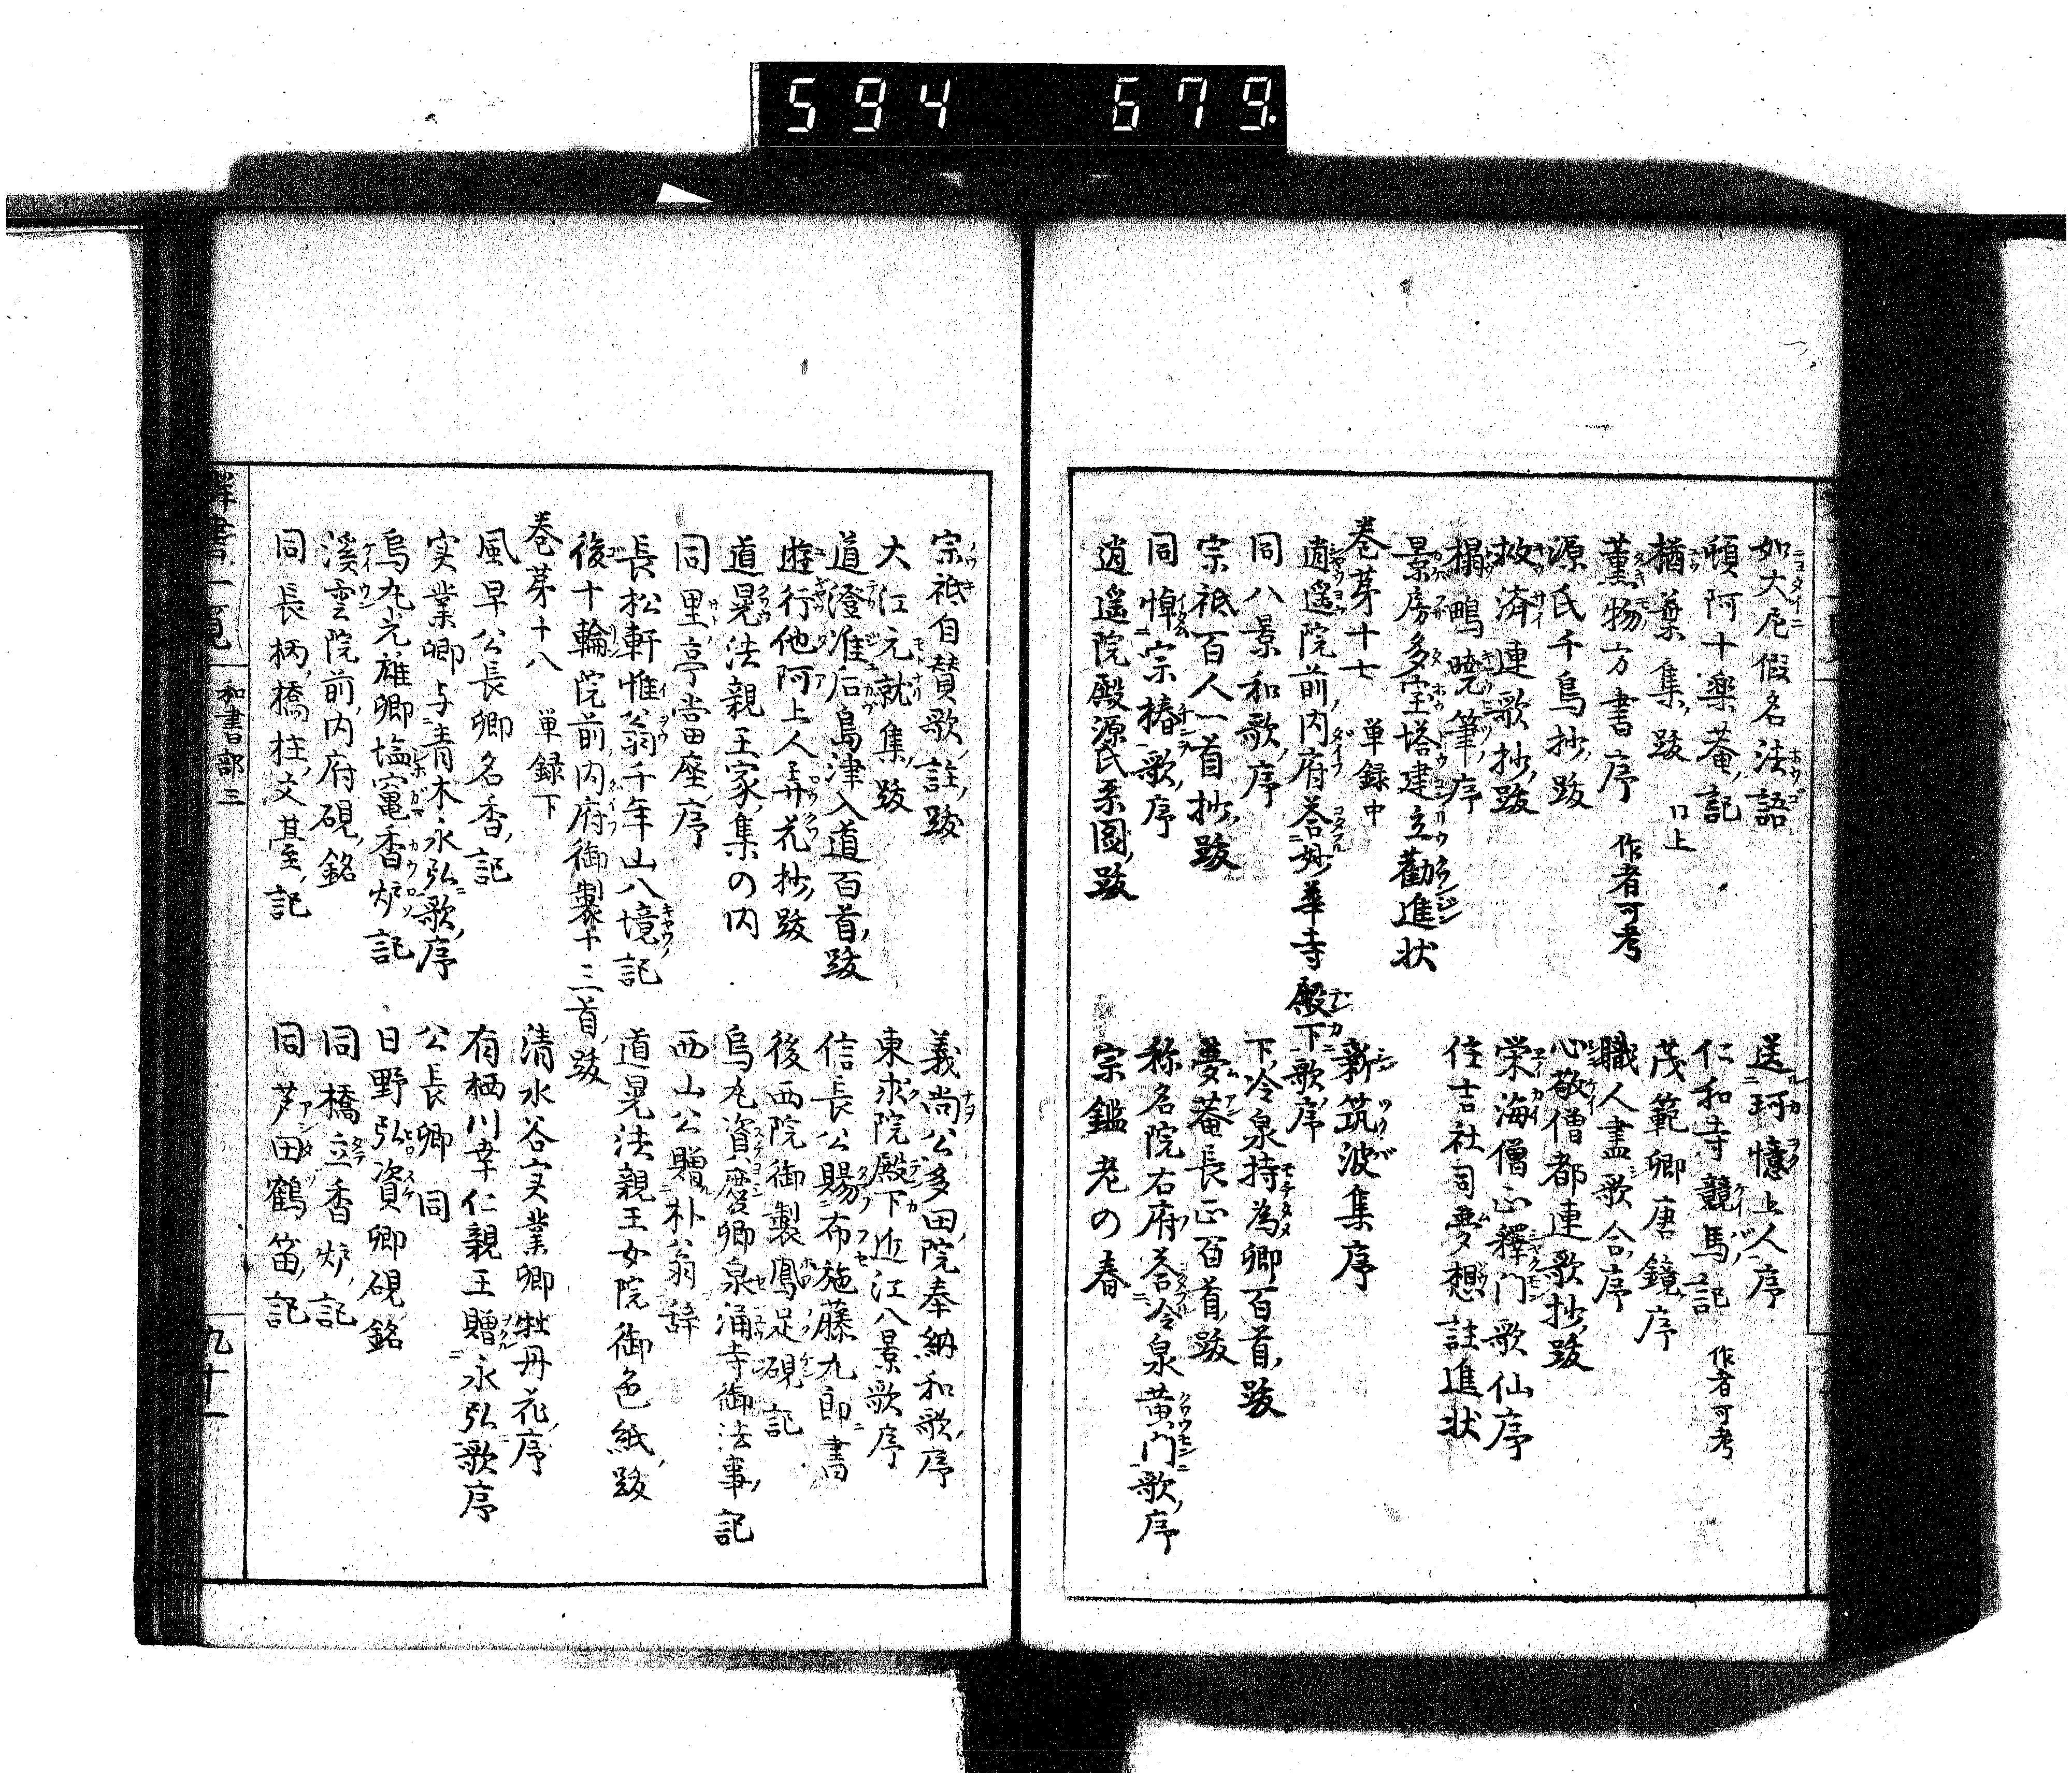 594 679.
如大尼假名法語 送珂憶上人序
頓阿十楽菴記 仁和寺競馬記 作者可考
猶葉集跋 口上 茂範卿唐鏡序
薫物方書序 作者可考 職人盡歌合序
源氏千鳥抄跋 心敬僧都連歌抄跋
救済連歌抄跋 栄海僧正釋門歌仙序
榻鴫暁筆序 住吉社司夢想註進状
景房多宝塔建立勸進状
巻苐十七 単録中 新筑波集序
逍遥院前内府答妙華寺殿下歌序
同八景和歌序 下冷泉持為卿百首跋
宗祇百人一首抄跋 夢菴長正百首跋
同悼宗椿歌序 称名院右府答冷泉黄門歌序
逍遥院殿源氏系圖跋 宗鑑老の春
宗祇自賛歌註跋 義尚公多田院奉納和歌序
大江元就集跋 東求院殿下近江八景歌序
道澄准后島津入道百首跋 信長公賜布施藤九郎書
遊行他阿上人弄花抄跋 後西院御製鳳足硯記
道晃法親王家集の内 烏丸資慶卿泉涌寺御法事記
同里亭當座序 西山公贈朴翁辞
長松軒惟翁千年山八境記 道晃法親王女院御色紙跋
後十輪院前内府御製十三首跋
巻苐十八 単録下 清水谷実業卿牡丹花序
風早公長卿名香記 有栖川幸仁親王贈永弘歌序
実業卿与青木永弘歌序 公長卿 同
烏丸光雄卿塩竃香炉記 日野弘資卿硯銘
溪雲院前内府硯銘 同橋立香炉記
同長柄橋柱文䑓記 同芦田鶴笛記
群書一覧 和書部三 九十一